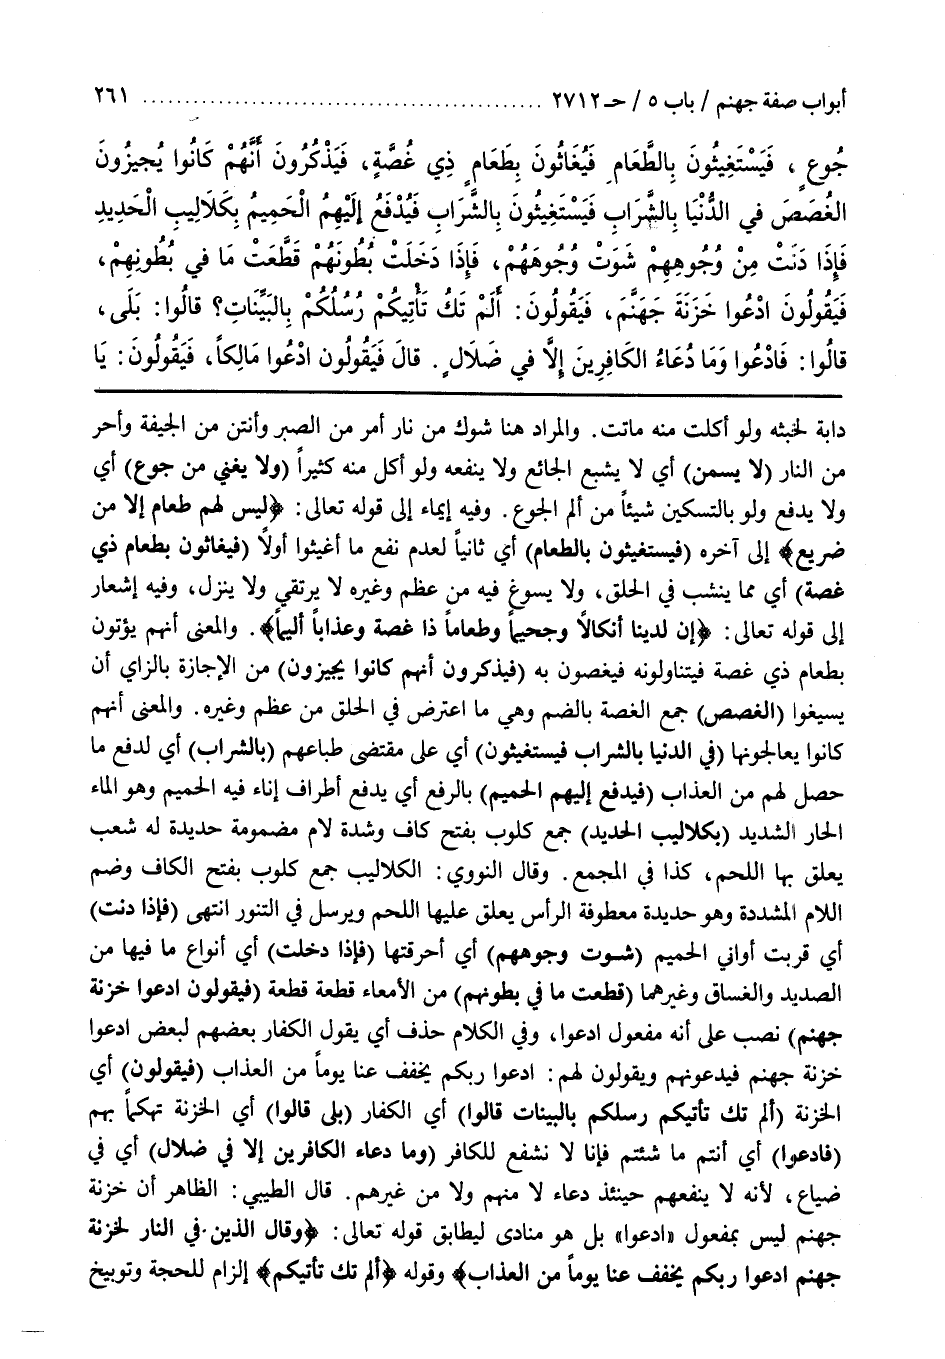 أبواب صفة جهنم / باب ٥ / حـ ٢٧١٢ ........................................ ٢٦١
جُوعٍ ، فَيَسْتَغِيثُونَ بِالطَّعَامِ فَيُغَاثُونَ بِطَعَامٍ ذِي غُصَّةٍ، فَيَذْكُرُونَ أَنَّهُمْ كَانُوا يُجِيزُونَ
الغُصَصَ في الدُّنْيَا بِالشَّرَابِ فَيَسْتَغِيثُونَ بِالشَّرَابِ فَيُدْفَعُ إِلَيْهِمُ الْحَمِيمُ بِكَلَالِيبِ الْحَدِيدِ
فَإِذَا دَنَتْ مِنْ وُجُوهِهِمْ شَوَتْ وُجُوهَهُمْ، فَإِذَا دَخَلَتْ بُطُونَهُمْ قَطَّعَتْ مَا في بُطُونِهِمْ،
فَيَقُولُونَ ادْعُوا خَزَنَةَ جَهَنَّمَ، فَيَقُولُونَ: أَلَمْ تَكُ تَأْتِيكُمْ رُسُلُكُمْ بِالبَيِّنَاتِ؟ قالُوا: بَلَى،
قالُوا: فَادْعُوا وَمَا دُعَاءُ الكَافِرِينَ إِلَّا في ضَلَالٍ. قالَ فَيَقُولُون ادْعُوا مَالِكاً، فَيَقُولُونَ: يَا
دابة لخبثه ولو أكلت منه ماتت. والمراد هنا شوك من نار أمر من الصبر وأنتن من الجيفة وأحر
من النار (لا يسمن) أي لا يشبع الجائع ولا ينفعه ولو أكل منه كثيراً (ولا يغني من جوع) أي
ولا يدفع ولو بالتسكين شيئاً من ألم الجوع. وفيه إيماء إلى قوله تعالى: ﴿ليس لهم طعام إلا من
ضريع﴾ إلى آخره (فيستغيثون بالطعام) أي ثانياً لعدم نفع ما أغيثوا أولاً (فيغاثون بطعام ذي
غصة) أي مما ينشب في الحلق، ولا يسوغ فيه من عظم وغيره لا يرتقي ولا ينزل، وفيه إشعار
إلى قوله تعالى: ﴿إن لدينا أنكالاً وجحيماً وطعاماً ذا غصة وعذاباً أليماً﴾. والمعنى أنهم يؤتون
بطعام ذي غصة فيتناولونه فيغصون به (فيذكرون أنهم كانوا يجيزون) من الإجازة بالزاي أن
يسيغوا (الغصص) جمع الغصة بالضم وهي ما اعترض في الحلق من عظم وغيره. والمعنى أنهم
كانوا يعالجونها (في الدنيا بالشراب فيستغيثون) أي على مقتضى طباعهم (بالشراب) أي لدفع ما
حصل لهم من العذاب (فيدفع إليهم الحميم) بالرفع أي يدفع أطراف إناء فيه الحميم وهو الماء
الحار الشديد (بكلاليب الحديد) جمع كلوب بفتح كاف وشدة لام مضمومة حديدة له شعب
يعلق بها اللحم، كذا في المجمع. وقال النووي: الكلاليب جمع كلوب بفتح الكاف وضم
اللام المشددة وهو حديدة معطوفة الرأس يعلق عليها اللحم ويرسل في التنور انتهى (فإذا دنت)
أي قربت أواني الحميم (شوت وجوههم) أي أحرقتها (فإذا دخلت) أي أنواع ما فيها من
الصديد والغساق وغيرهما (قطعت ما في بطونهم) من الأمعاء قطعة قطعة (فيقولون ادعوا خزنة
جهنم) نصب على أنه مفعول ادعوا، وفي الكلام حذف أي يقول الكفار بعضهم لبعض ادعوا
خزنة جهنم فيدعونهم ويقولون لهم: ادعوا ربكم يخفف عنا يوماً من العذاب (فيقولون) أي
الخزنة (ألم تك تأتيكم رسلكم بالبينات قالوا) أي الكفار (بلى قالوا) أي الخزنة تهكماً بهم
(فادعوا) أي أنتم ما شئتم فإنا لا نشفع للكافر (وما دعاء الكافرين إلا في ضلال) أي في
ضياع، لأنه لا ينفعهم حينئذ دعاء لا منهم ولا من غيرهم. قال الطيبي: الظاهر أن خزنة
جهنم ليس بمفعول «ادعوا» بل هو منادى ليطابق قوله تعالى: ﴿وقال الذين في النار لخزنة
جهنم ادعوا ربكم يخفف عنا يوماً من العذاب﴾ وقوله ﴿ألم تك تأتيكم﴾ إلزام للحجة وتوبيخ